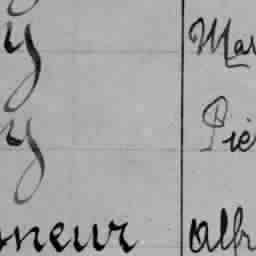 y Mar
y Piè
nneur Alfr